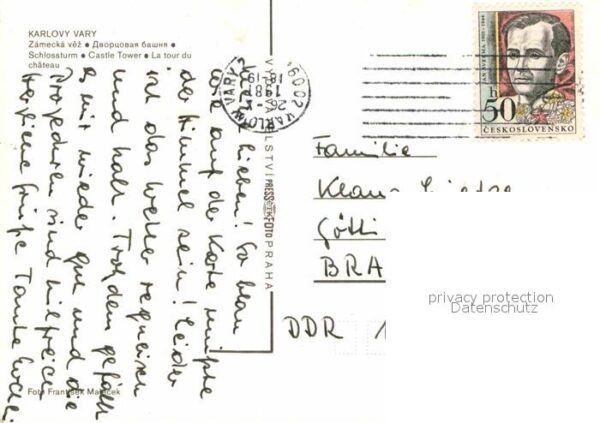 KARLOVY VARY
Zámecká věž • Дворцовая башня •
Schlossturm • Castle Tower • La tour du
château
Lieben! So blau
wie auf der Karte müßte
der Himmel sein! Leider
ist das Wetter regnerisch
und kalt. Trotzdem gefällt
es mir wieder gut und die
Prozeduren sind hilfreich
herzliche Grüße Tante
Foto František
PRESSFOTO
PRAHA
36009 KARLOVY VARY
1981
JAN ŠVERMA 1901-1944
50 h
ČESKOSLOVENSKO
Familie
Klaus
Götti
BRA
DDR 1
privacy protection
Datenschutz